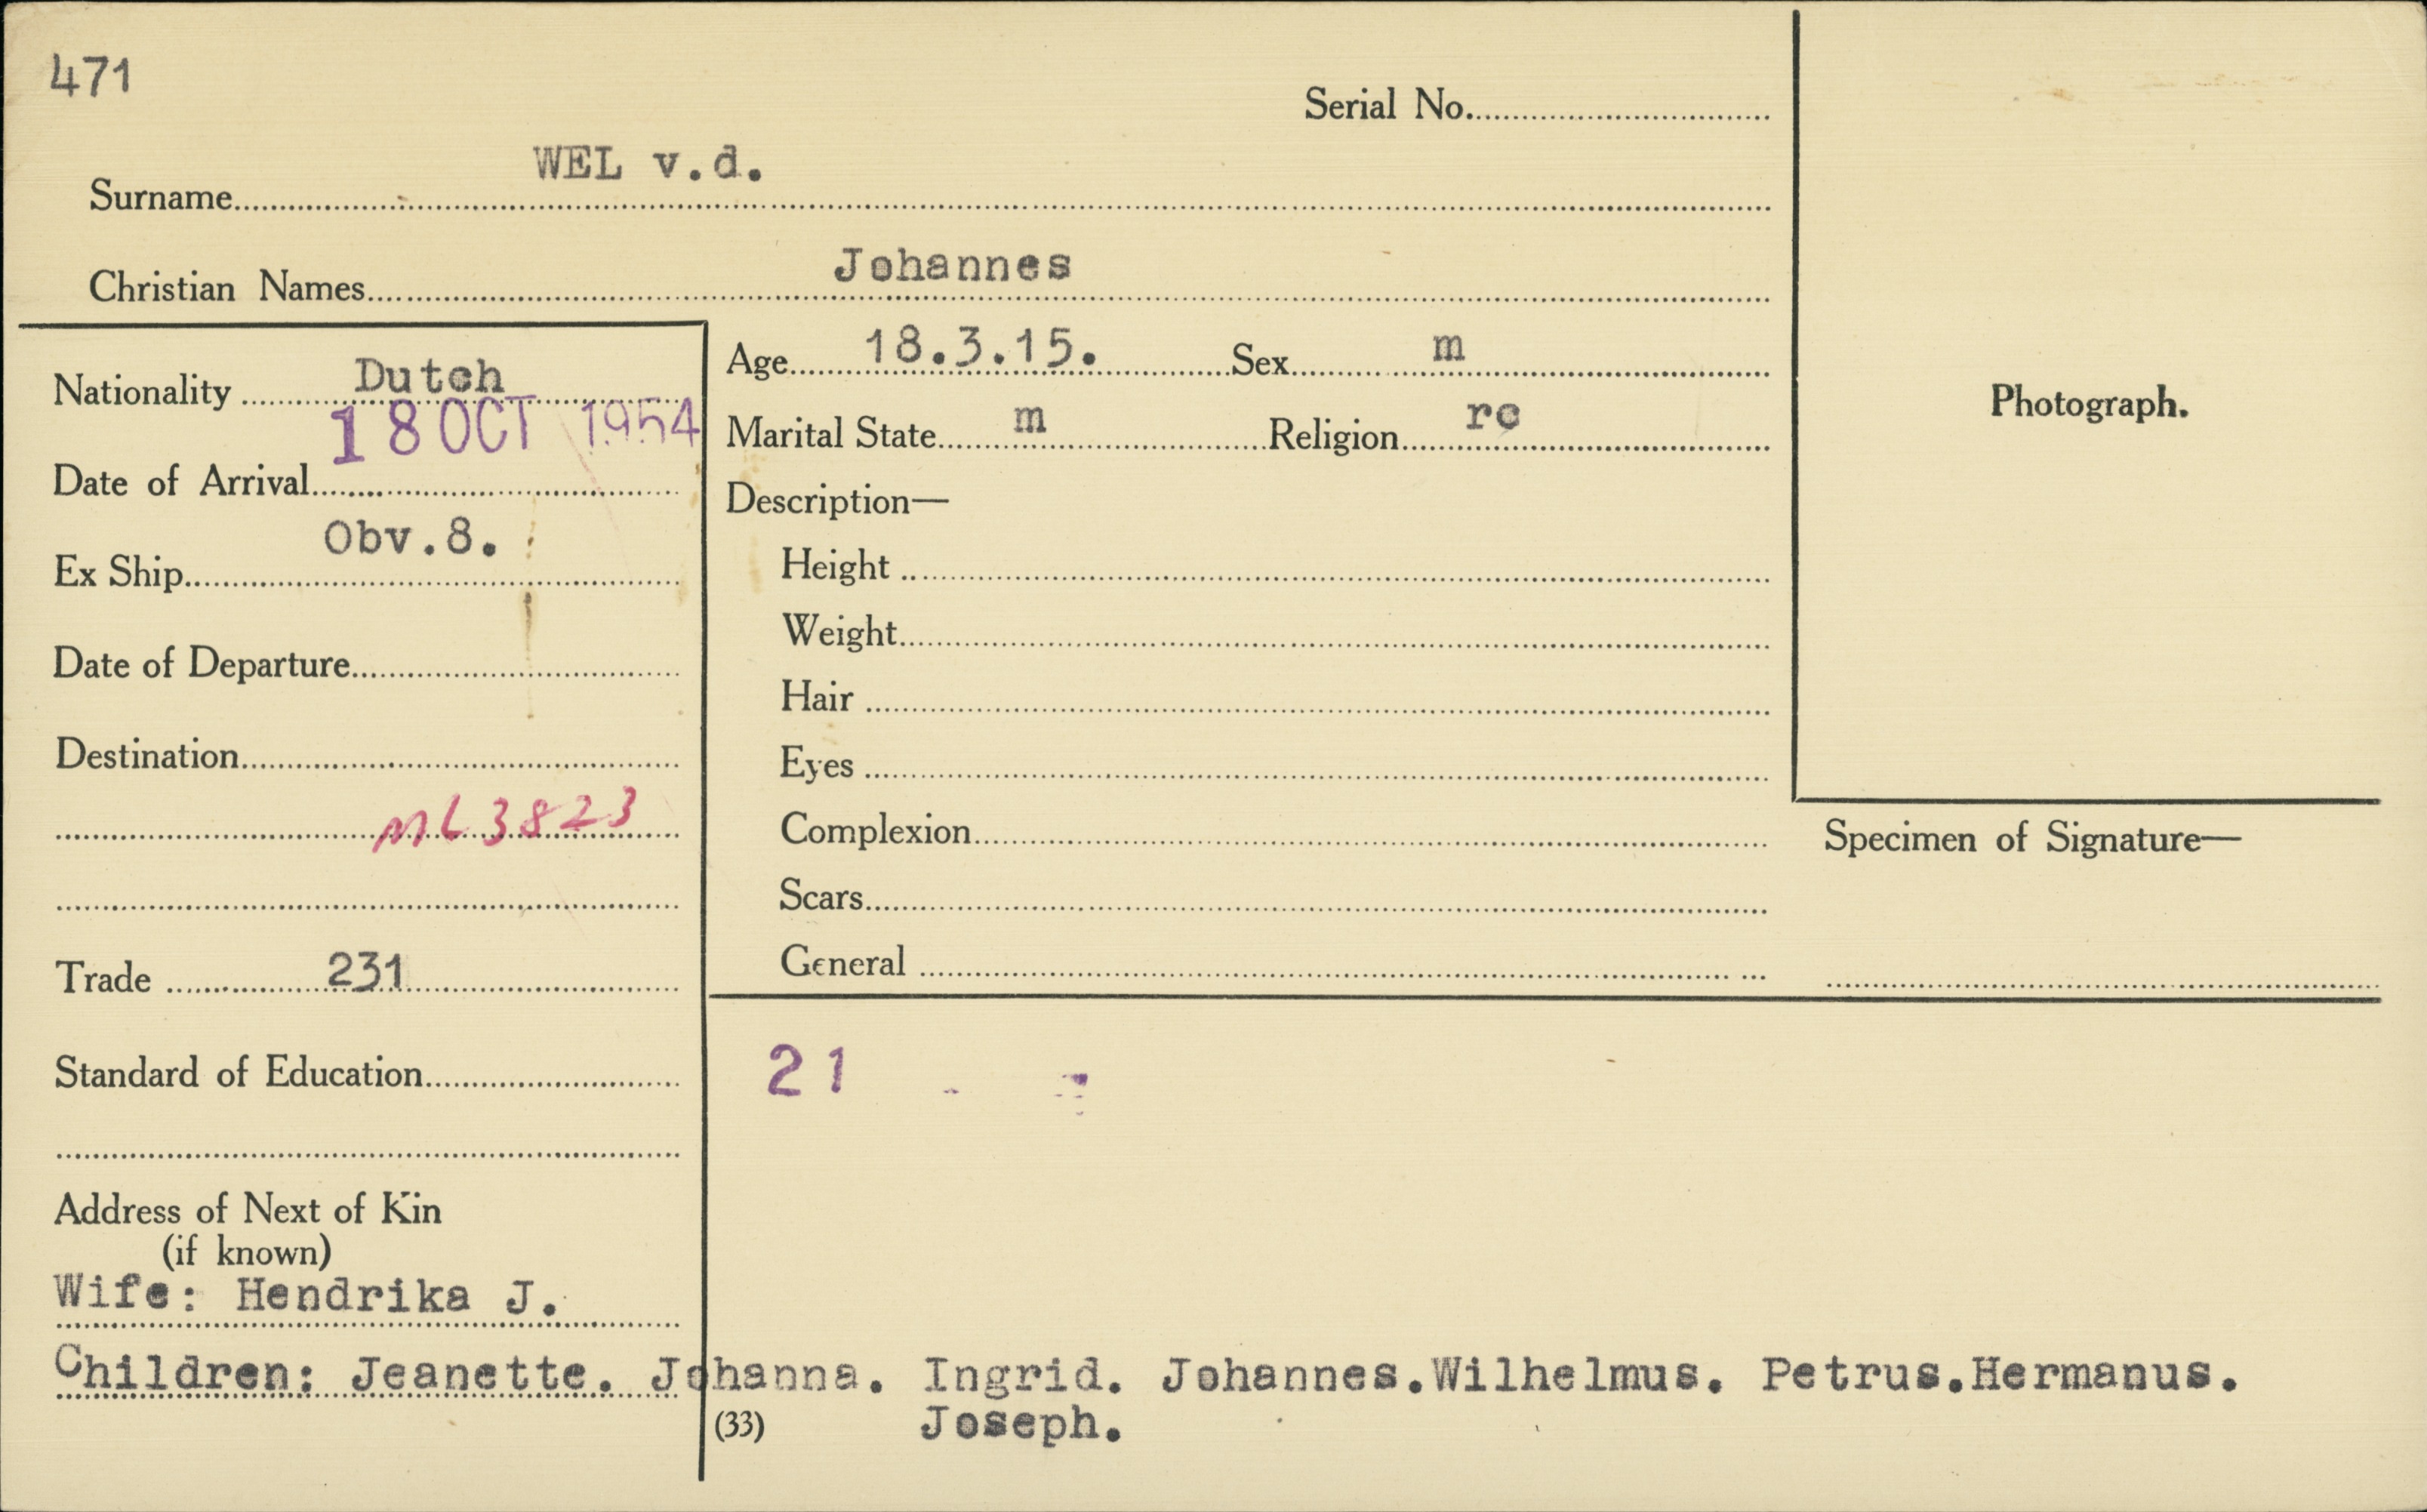 471
Serial No.
Surname WEL v.d.
Christian Names Johannes
Nationality Dutch
Date of Arrival 18 OCT 1954
Ex Ship Obv.8.
Date of Departure
Destination
ML3823
Trade 231
Standard of Education
Address of Next of Kin
(if known)
Wife: Hendrika J.
Age 18.3.15. Sex m
Marital State m Religion rc
Description—
Height
Weight
Hair
Eyes
Complexion
Scars
General
Photograph.
Specimen of Signature—
21
Children: Jeanette. Johanna. Ingrid. Johannes.Wilhelmus. Petrus.Hermanus.
(33) Joseph.